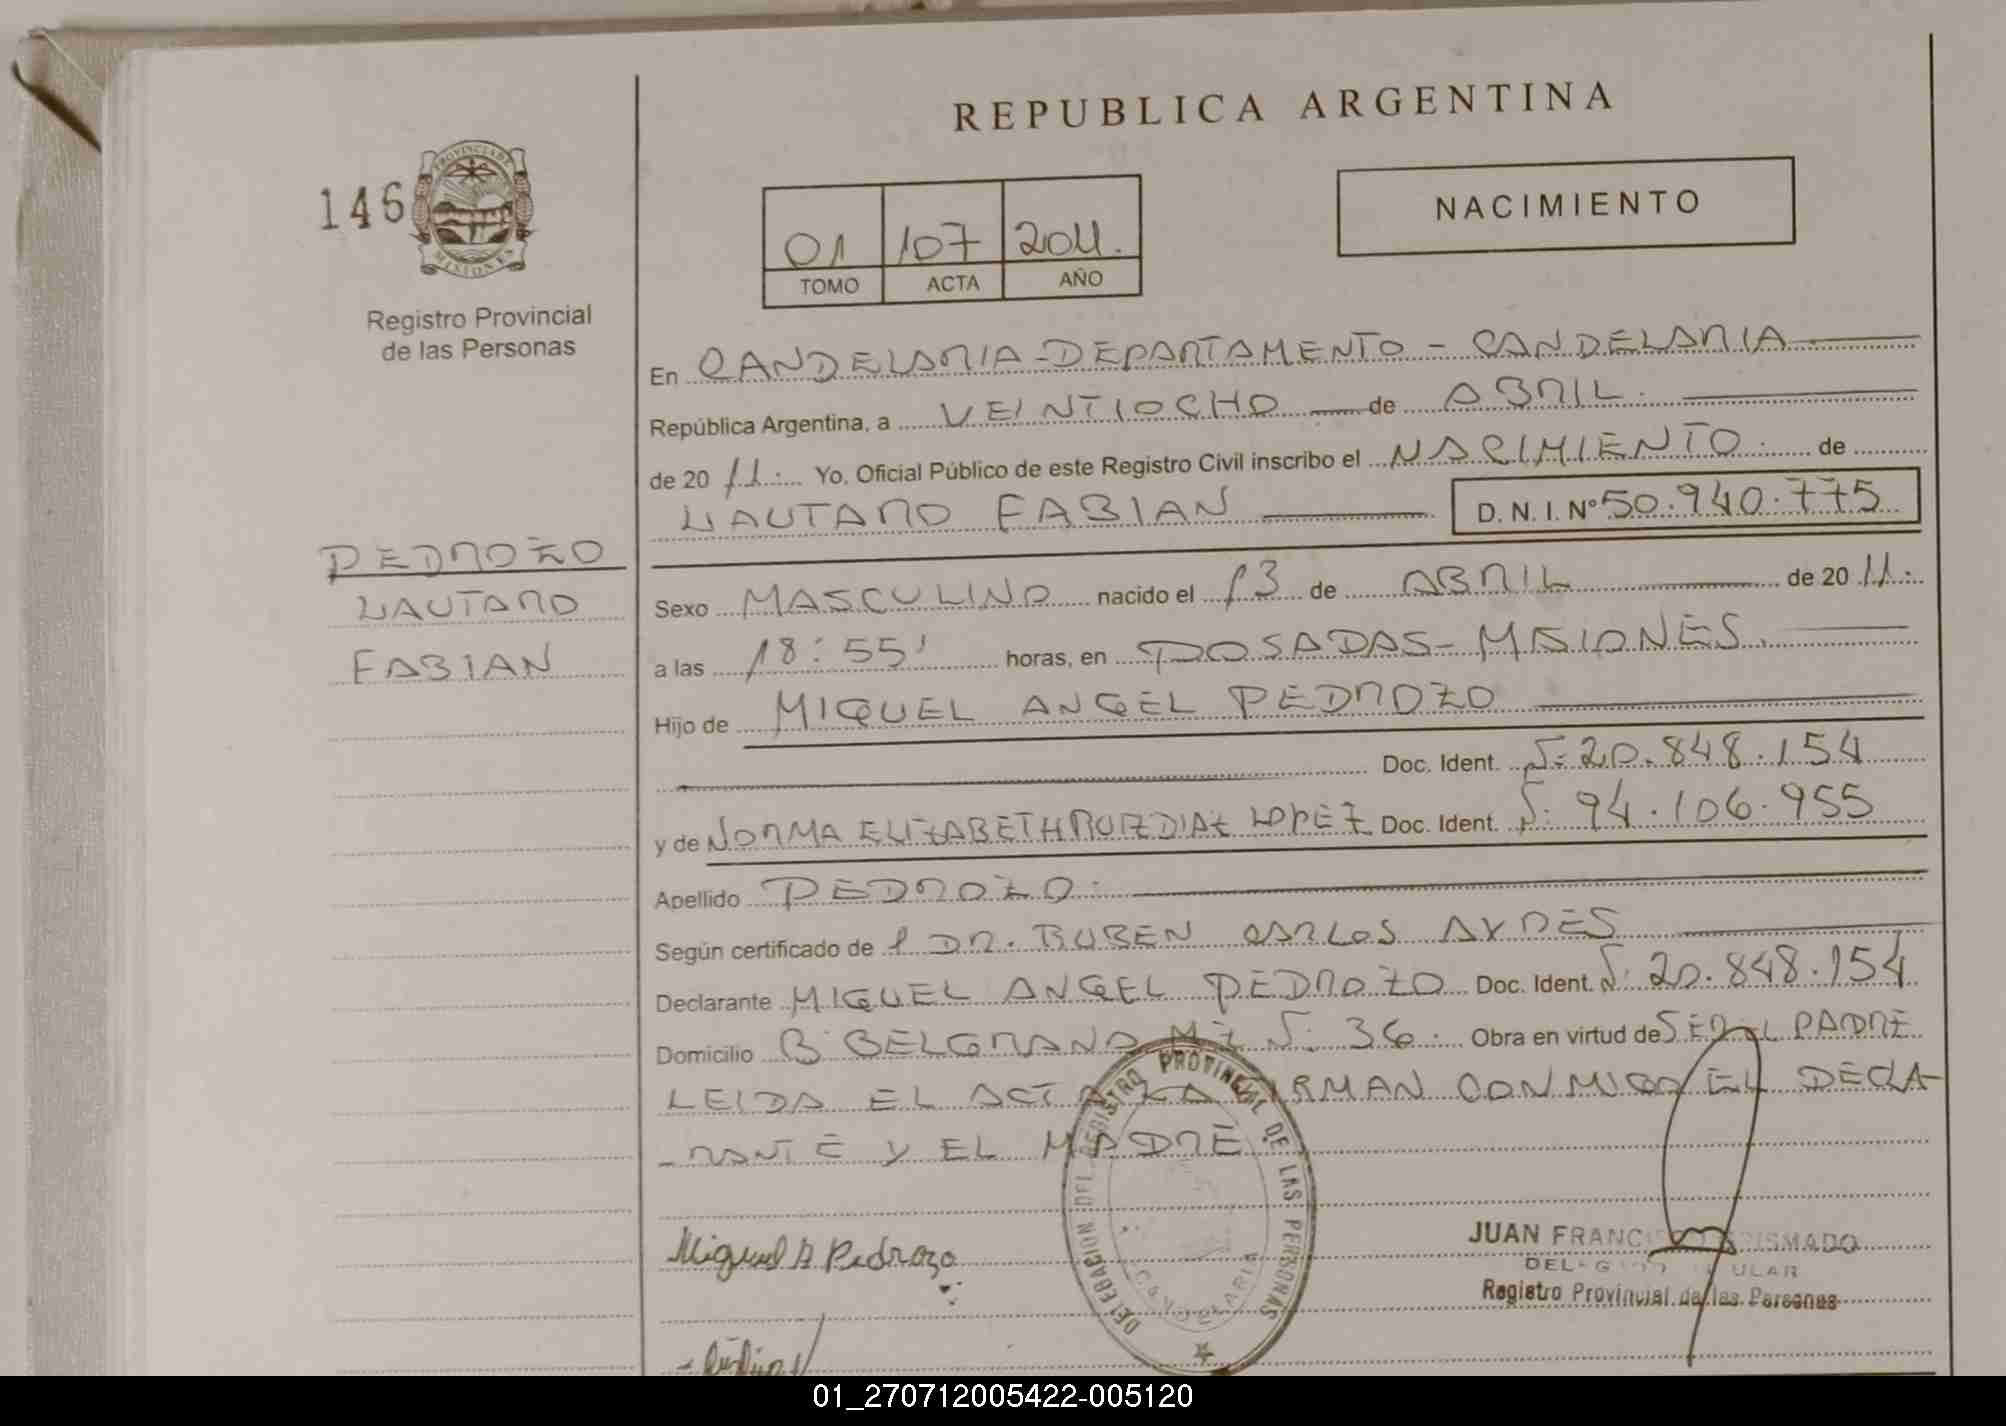 REPUBLICA ARGENTINA
146
PROVINCIA DE MISIONES
Registro Provincial
de las Personas
01 107 2011.
TOMO ACTA AÑO
NACIMIENTO
En CANDELARIA - DEPARTAMENTO - CANDELARIA
República Argentina, a VEINTIOCHO de ABRIL.
de 20 11. Yo, Oficial Público de este Registro Civil inscribo el NACIMIENTO. de
LAUTARO FABIAN D. N. I. Nº 50.940.775
PEDROZO
LAUTARO
FABIAN
Sexo MASCULINO nacido el 13 de ABRIL de 20 11.
a las 18:55' horas, en POSADAS - MISIONES.
Hijo de MIGUEL ANGEL PEDROZO
Doc. Ident. N: 20.848.154
y de NORMA ELIZABETH RUIZ DIAZ LOPEZ Doc. Ident. N: 94.106.955
Apellido PEDROZO.
Según certificado de l DR. RUBEN CARLOS AYRES
Declarante MIGUEL ANGEL PEDROZO Doc. Ident. N: 20.848.154
Domicilio B BELGRANO MZ N: 36. Obra en virtud de SER EL PADRE
LEIDA EL ACTA LA FIRMAN CONMIGO EL DECLA-
-RANTE Y EL MADRE
DELEGACION DEL REGISTRO PROVINCIAL DE LAS PERSONAS
CANDELARIA
Miguel A Pedrozo
JUAN FRANCISCO
Registro Provincial de las Personas
01_270712005422-005120